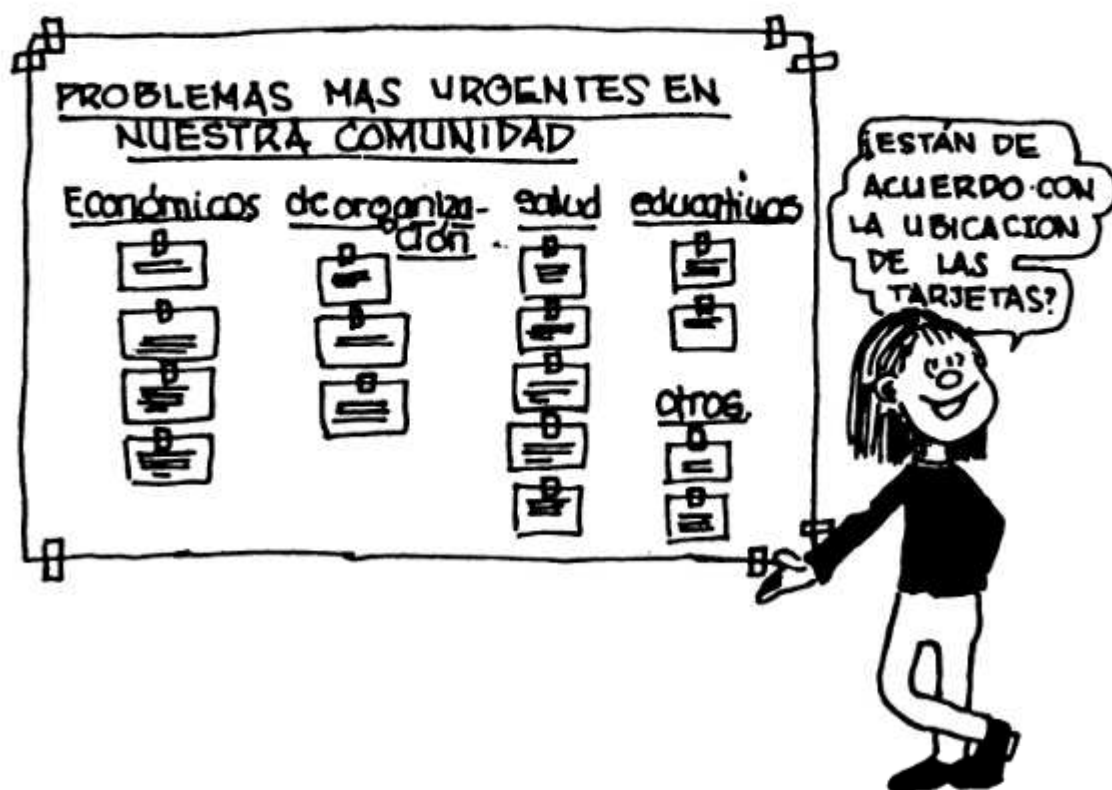 PROBLEMAS MAS URGENTES EN
NUESTRA COMUNIDAD
Económicos
de organiza-
ción
salud
educativos
otros.
¡ESTÁN DE
ACUERDO CON
LA UBICACION
DE LAS
TARJETAS?